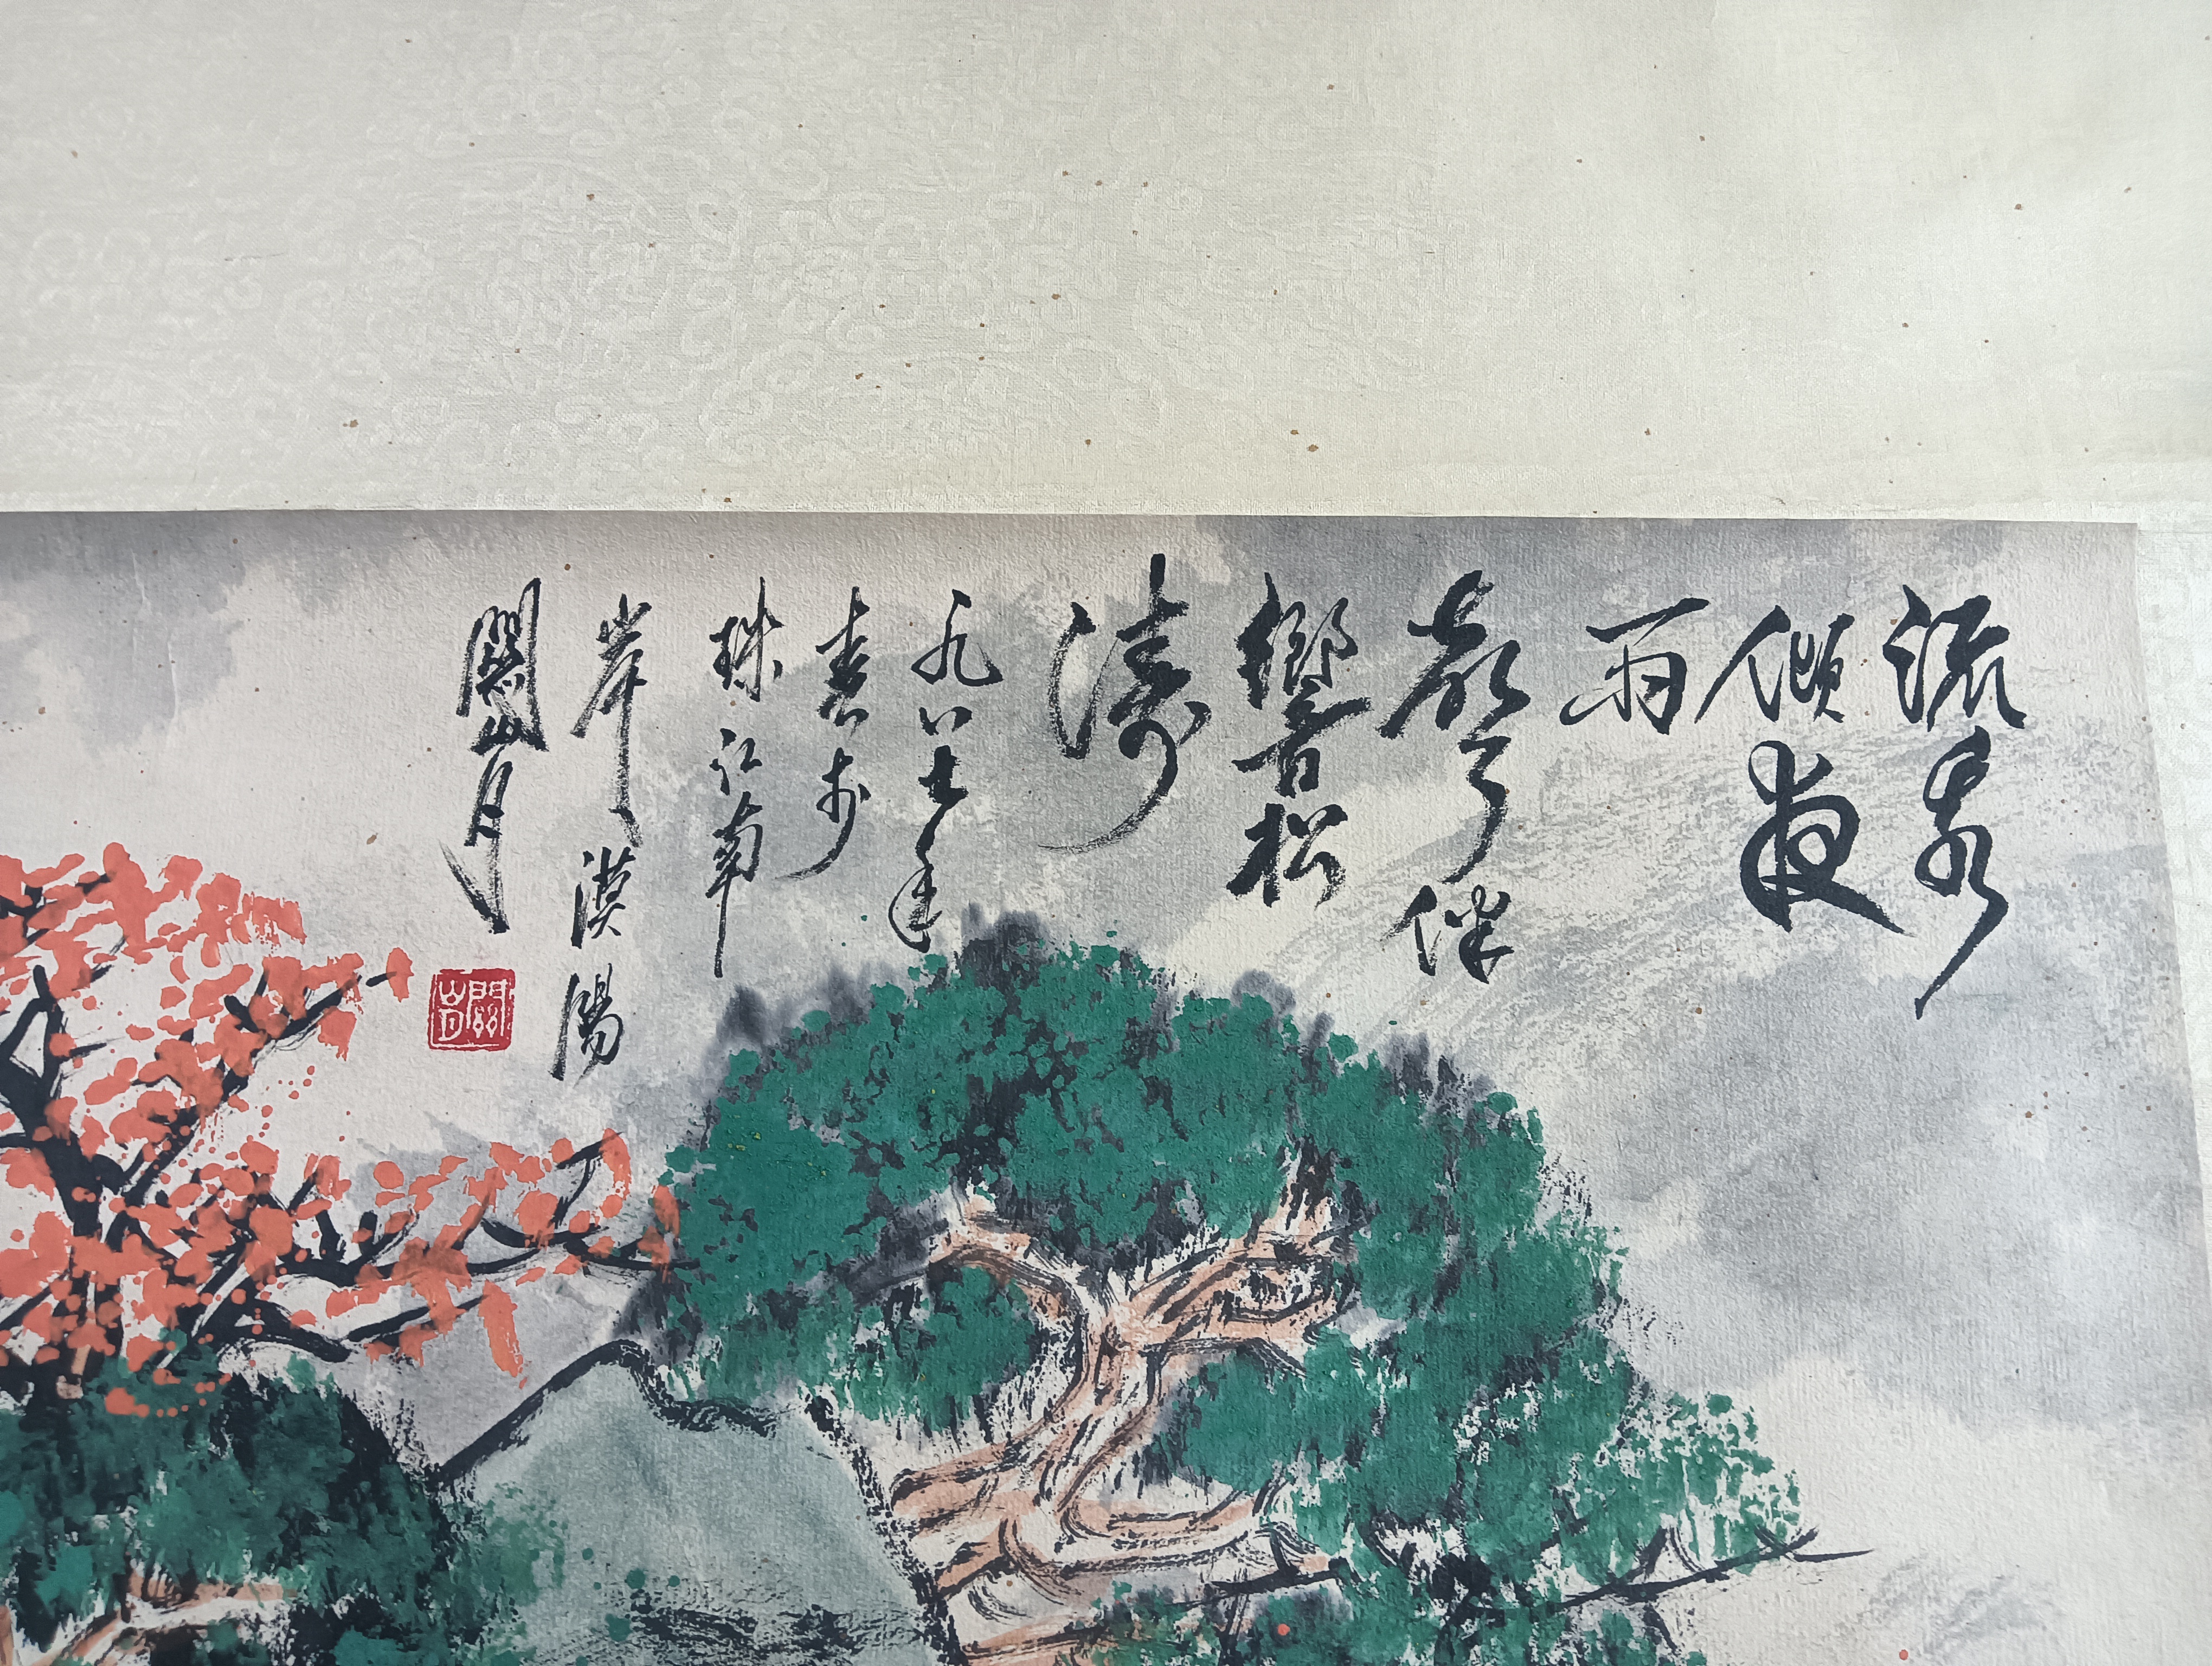 流泉
傾夜
雨
伴
響松
濤
九八七年
於
珠江南
岸漠陽
關山月
關山月